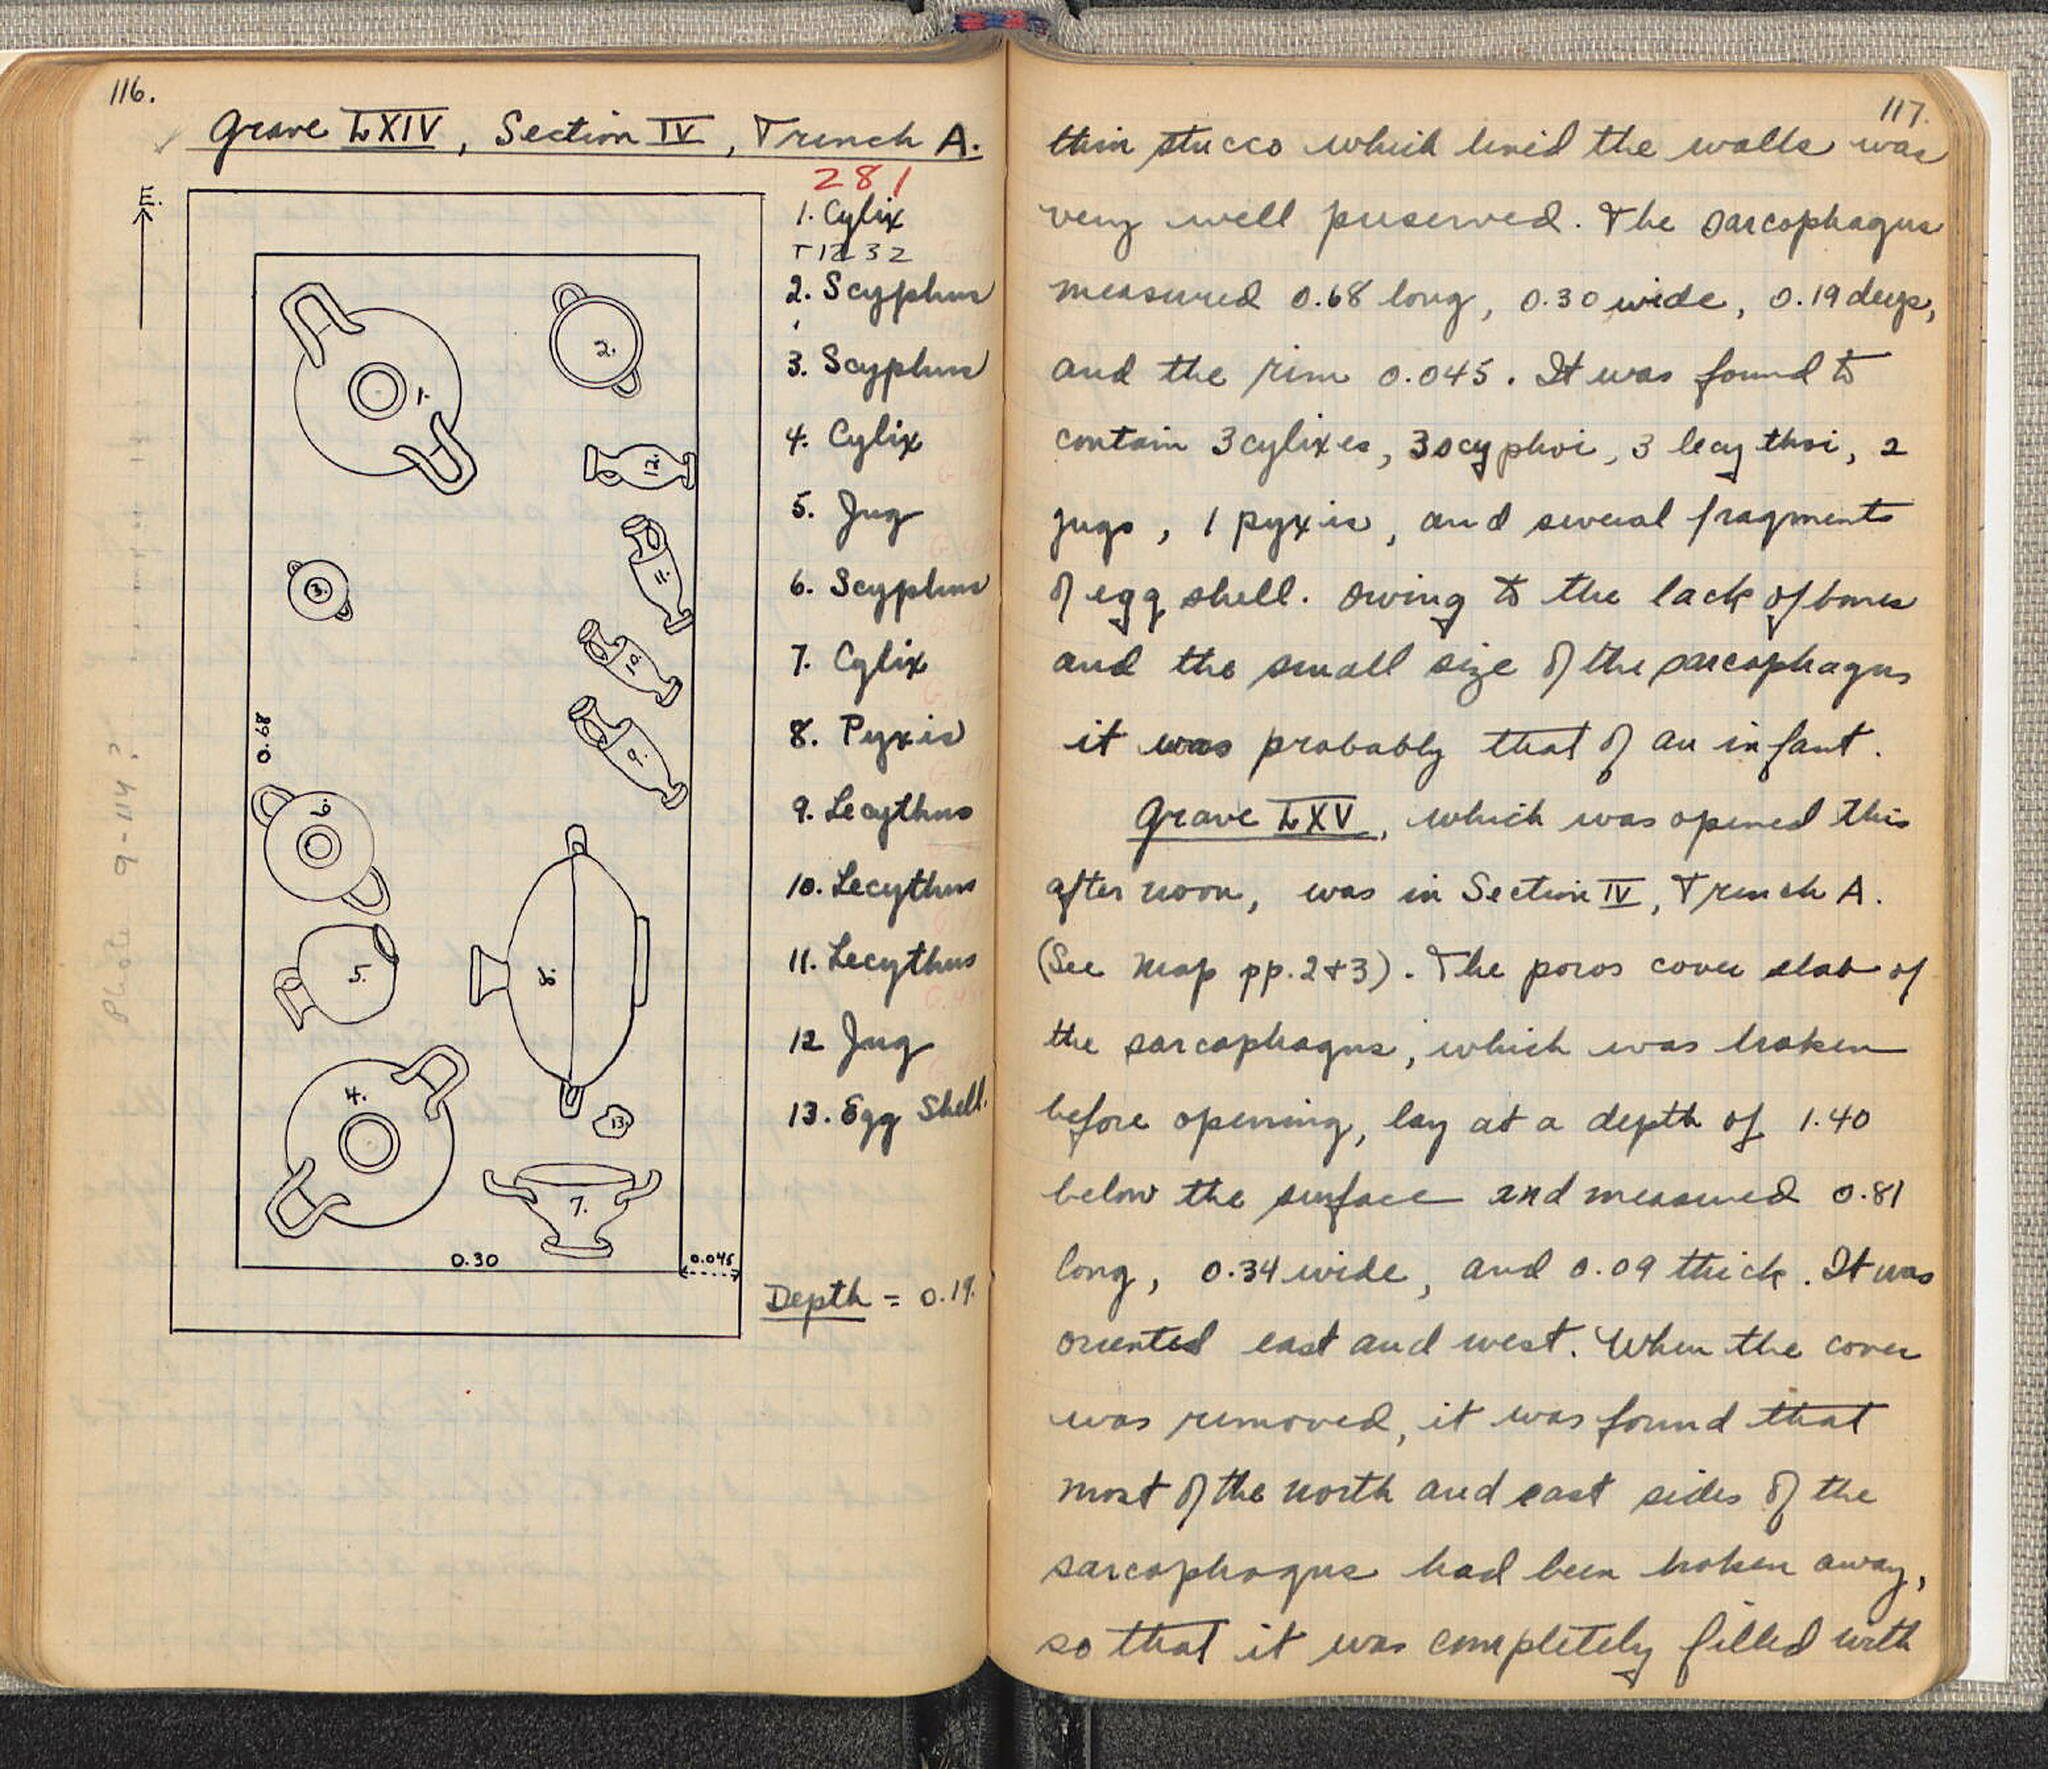 116.
Grave LXIV, Section IV, Trench A.
281
E.
1. Cylix
T1232
2. Scyphus
3. Scyphus
4. Cylix
5. Jug
6. Scyphus
7. Cylix
8. Pyxis
9. Lecythus
10. Lecythus
11. Lecythus
12 Jug
13. Egg Shell.
Depth = 0.19.
1.
2.
12.
11.
3.
10.
9.
0.68
6.
5.
8.
4.
13.
7.
0.30
0.045
Photo 9-114?
117.
thin stucco which lined the walls was
very well preserved. The sarcophagus
measured 0.68 long, 0.30 wide, 0.19 deep,
and the rim 0.045. It was found to
contain 3 cylixes, 3 scyphoi, 3 lecythoi, 2
jugs, 1 pyxis, and several fragments
of egg shell. Owing to the lack of bones
and the small size of the sarcophagus
it was probably that of an infant.
Grave LXV, which was opened this
afternoon, was in Section IV, Trench A.
(See Map pp. 2+3). The poros cover slab of
the sarcophagus, which was broken
before opening, lay at a depth of 1.40
below the surface and measured 0.81
long, 0.34 wide, and 0.09 thick. It was
oriented east and west. When the cover
was removed, it was found that
most of the north and east sides of the
sarcophagus had been broken away,
so that it was completely filled with